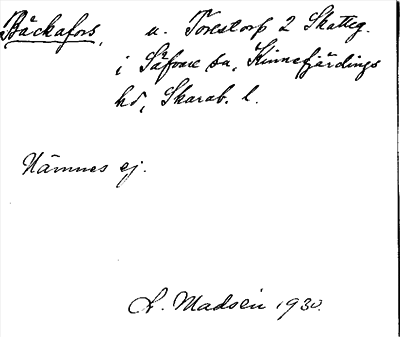 Bäckafors, u. Torestorp 2 Skatteg.
i Säfvare sn, Kinnefjärdings
hd, Skarab. l.
Nämnes ej.
L. Madsén 1930.